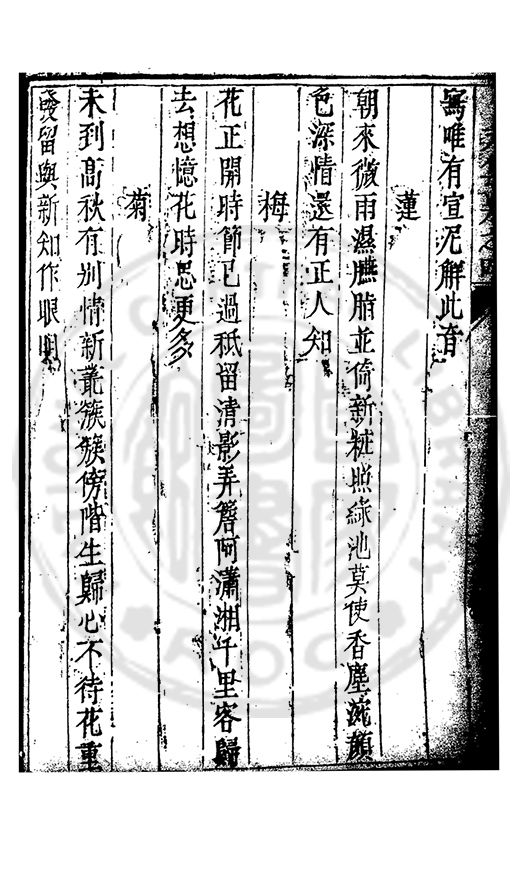 寫唯有宣尼解此音
蓮
朝來微雨濕臙脂並倚新粧照綠池莫使香塵涴顏
色深情還有正人知
梅
花正開時節已過秪留清影弄簷阿瀟湘千里客歸
去想憶花時思更多
菊
未到高秋有別情新叢簇簇傍階生歸心不待花重
發留與新知作眼明